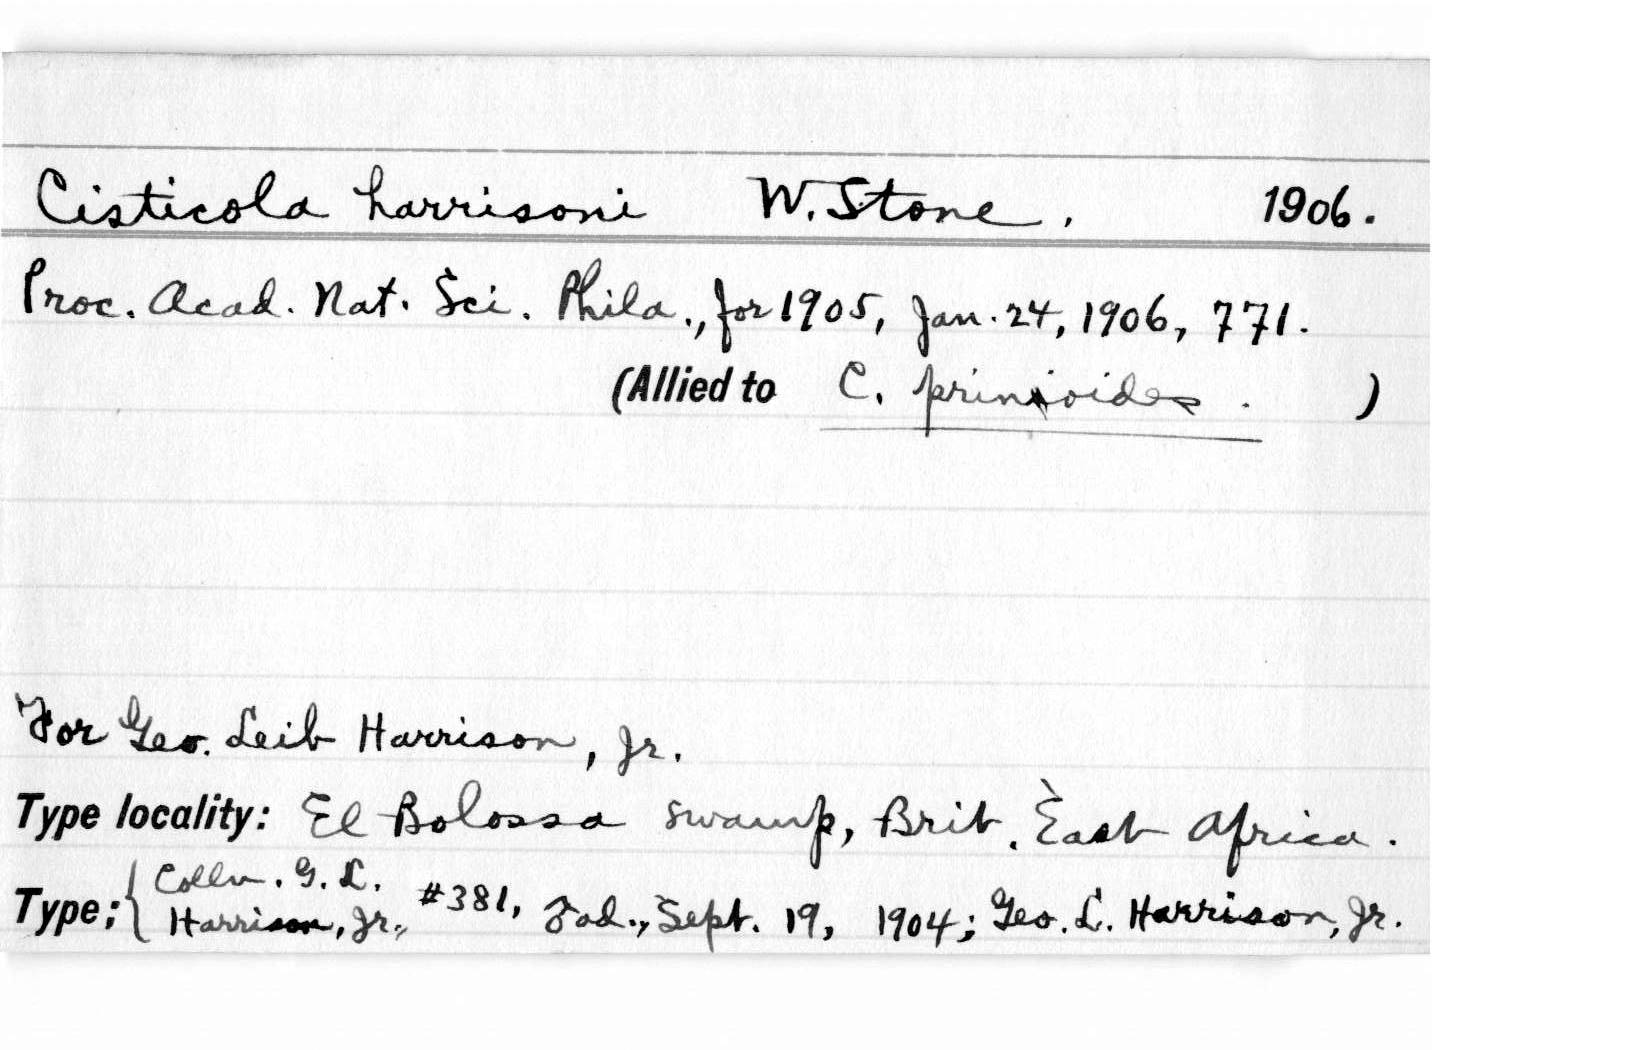 Cisticola harrisoni W. Stone, 1906.
Proc. Acad. Nat. Sci. Phila., for 1905, Jan. 24, 1906, 771.
(Allied to C. prinioides. )
For Geo. Leib Harrison, Jr.
Type locality: El Bolossa swamp, Brit. East Africa.
Type: { Colln. G. L.
Harrison, Jr., #381, ad., Sept. 19, 1904; Geo. L. Harrison, Jr.